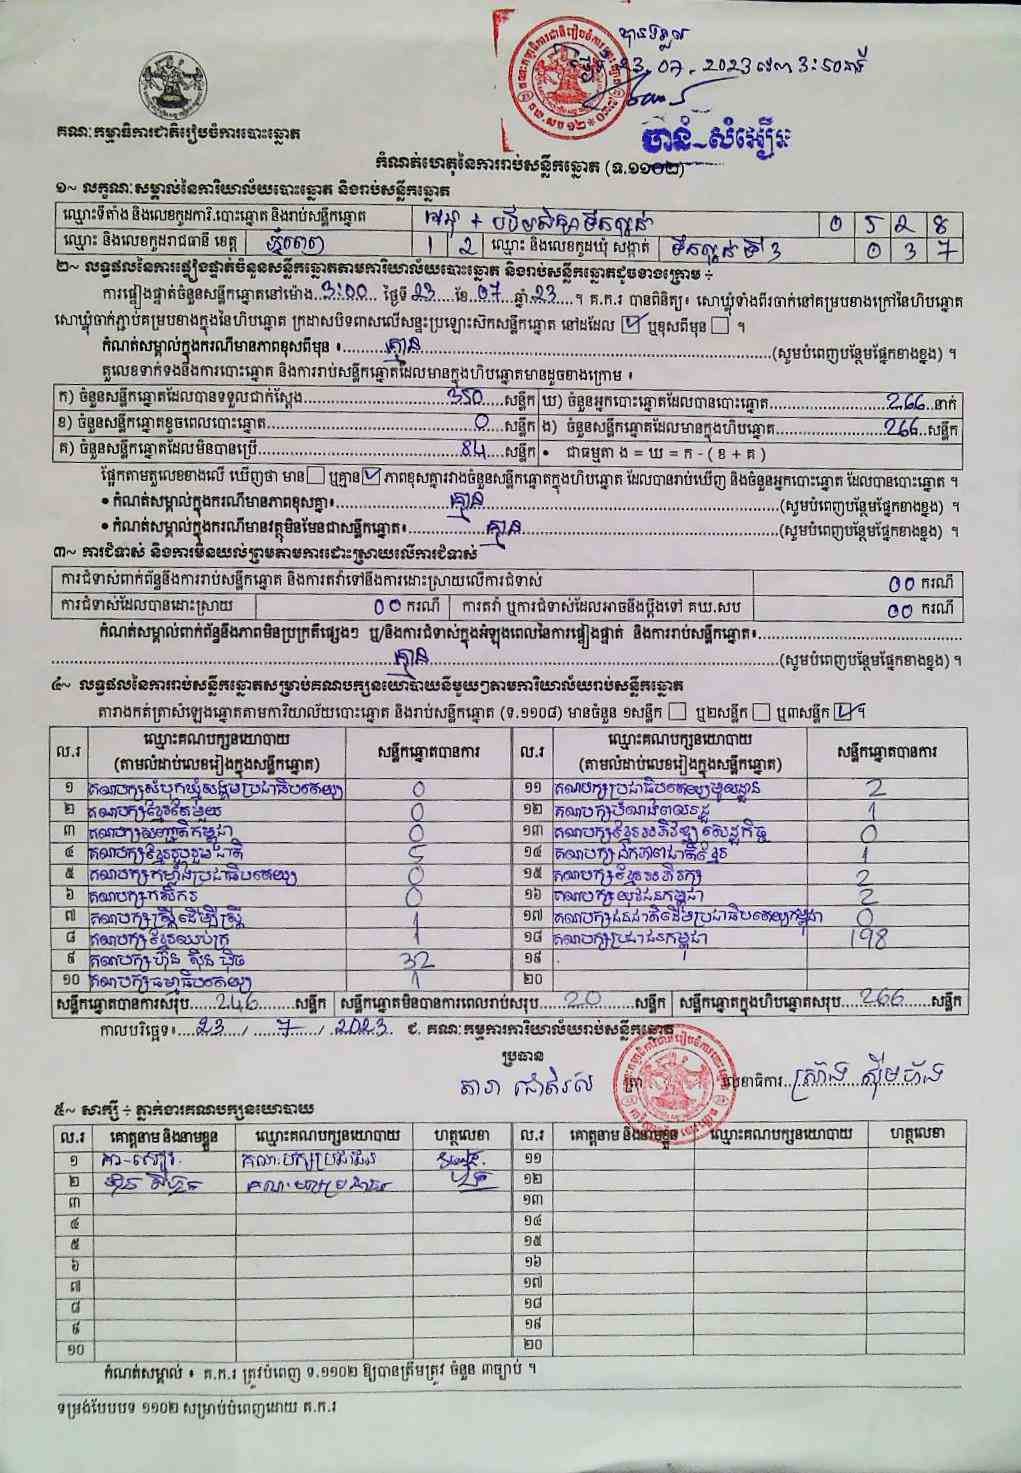 បានទទួល
ថ្ងៃទី 23.07.2023 វេលា 3:50នាទី
ចាន់ សំអឿន
គណៈកម្មាធិការជាតិរៀបចំការបោះឆ្នោត
កំណត់ហេតុនៃការរាប់សន្លឹកឆ្នោត (ទ.១១០២)
១~ លក្ខណៈសម្គាល់នៃការិយាល័យបោះឆ្នោត និងរាប់សន្លឹកឆ្នោត
ឈ្មោះទីតាំង និងលេខកូដការិ.បោះឆ្នោត និងរាប់សន្លឹកឆ្នោត 0 5 2 8
ឈ្មោះ និងលេខកូដរាជធានី ខេត្ត ភ្នំពេញ 1 2 ឈ្មោះ និងលេខកូដឃុំ សង្កាត់ ទឹកល្អក់ទី3 0 3 7
២~ លទ្ធផលនៃការផ្ទៀងផ្ទាត់ចំនួនសន្លឹកឆ្នោតតាមការិយាល័យបោះឆ្នោត និងរាប់សន្លឹកឆ្នោតដូចខាងក្រោម ÷
ការផ្ទៀងផ្ទាត់ចំនួនសន្លឹកឆ្នោតនៅម៉ោង..3:00.. ថ្ងៃទី 23 ខែ 07 ឆ្នាំ 23 ។ គ.ក.រ បានពិនិត្យ៖ សោឃ្លុំទាំងពីរចាក់នៅគម្របខាងក្រៅនៃហិបឆ្នោត
សោឃ្លុំចាក់ភ្ជាប់គម្របខាងក្នុងនៃហិបឆ្នោត ក្រដាសបិទពាសលើសន្ទះប្រឡោះស៊កសន្លឹកឆ្នោត នៅដដែល ☑ ឬខុសពីមុន ☐ ។
កំណត់សម្គាល់ក្នុងករណីមានភាពខុសពីមុន ៖ គ្មាន (សូមបំពេញបន្ថែមផ្នែកខាងខ្នង) ។
តួលេខទាក់ទងនឹងការបោះឆ្នោត និងការរាប់សន្លឹកឆ្នោតដែលមានក្នុងហិបឆ្នោតមានដូចខាងក្រោម ៖
ក) ចំនួនសន្លឹកឆ្នោតដែលបានទទួលជាក់ស្តែង 350 សន្លឹក ឃ) ចំនួនអ្នកបោះឆ្នោតដែលបានបោះឆ្នោត 266 នាក់
ខ) ចំនួនសន្លឹកឆ្នោតខូចពេលបោះឆ្នោត 0 សន្លឹក ង) ចំនួនសន្លឹកឆ្នោតដែលមានក្នុងហិបឆ្នោត 266 សន្លឹក
គ) ចំនួនសន្លឹកឆ្នោតដែលមិនបានប្រើ 84 សន្លឹក • ជាធម្មតា ង = ឃ = ក - ( ខ + គ )
ផ្អែកតាមតួលេខខាងលើ ឃើញថា មាន ☐ ឬគ្មាន ☑ ភាពខុសគ្នារវាងចំនួនសន្លឹកឆ្នោតក្នុងហិបឆ្នោត ដែលបានរាប់ឃើញ និងចំនួនអ្នកបោះឆ្នោត ដែលបានបោះឆ្នោត ។
• កំណត់សម្គាល់ក្នុងករណីមានភាពខុសគ្នា៖ គ្មាន (សូមបំពេញបន្ថែមផ្នែកខាងខ្នង) ។
• កំណត់សម្គាល់ក្នុងករណីមានវត្ថុមិនមែនជាសន្លឹកឆ្នោត៖ គ្មាន (សូមបំពេញបន្ថែមផ្នែកខាងខ្នង) ។
៣~ ការជំទាស់ និងការមិនយល់ព្រមតាមការដោះស្រាយលើការជំទាស់
ការជំទាស់ពាក់ព័ន្ធនឹងការរាប់សន្លឹកឆ្នោត និងការតវ៉ាទៅនឹងការដោះស្រាយលើការជំទាស់ 00 ករណី
ការជំទាស់ដែលបានដោះស្រាយ 00 ករណី ការតវ៉ា ឬការជំទាស់ដែលអាចនឹងប្តឹងទៅ គឃ.សប 00 ករណី
កំណត់សម្គាល់ពាក់ព័ន្ធនឹងភាពមិនប្រក្រតីផ្សេងៗ ឬ/និងការជំទាស់ក្នុងអំឡុងពេលនៃការផ្ទៀងផ្ទាត់ និងការរាប់សន្លឹកឆ្នោត៖
គ្មាន (សូមបំពេញបន្ថែមផ្នែកខាងខ្នង) ។
៤~ លទ្ធផលនៃការរាប់សន្លឹកឆ្នោតសម្រាប់គណបក្សនយោបាយនីមួយៗតាមការិយាល័យរាប់សន្លឹកឆ្នោត
តារាងកត់ត្រាសំឡេងឆ្នោតតាមការិយាល័យបោះឆ្នោត និងរាប់សន្លឹកឆ្នោត (ទ.១១០៨) មានចំនួន ១សន្លឹក ☐ ឬ២សន្លឹក ☐ ឬ៣សន្លឹក ☑ ។
ល.រ ឈ្មោះគណបក្សនយោបាយ (តាមលំដាប់លេខរៀងក្នុងសន្លឹកឆ្នោត) សន្លឹកឆ្នោតបានការ ល.រ ឈ្មោះគណបក្សនយោបាយ (តាមលំដាប់លេខរៀងក្នុងសន្លឹកឆ្នោត) សន្លឹកឆ្នោតបានការ
១ គណបក្សសំបុកឃ្មុំសង្គមប្រជាធិបតេយ្យ 0 ១១ គណបក្សប្រជាធិបតេយ្យមូលដ្ឋាន 2
២ គណបក្សខ្មែរតែមួយ 0 ១២ គណបក្សបំណងពលរដ្ឋ 1
៣ គណបក្សសញ្ជាតិកម្ពុជា 0 ១៣ គណបក្សខ្មែរអភិវឌ្ឍសេដ្ឋកិច្ច 0
៤ គណបក្សខ្មែររួបរួមជាតិ 5 ១៤ គណបក្សឯកភាពជាតិខ្មែរ 1
៥ គណបក្សកម្លាំងប្រជាធិបតេយ្យ 0 ១៥ គណបក្សខ្មែរអភិរក្ស 2
៦ គណបក្សកសិករ 0 ១៦ គណបក្សយុវជនកម្ពុជា 2
៧ គណបក្សស្ត្រីដើម្បីស្ត្រី 1 ១៧ គណបក្សជនជាតិដើមប្រជាធិបតេយ្យកម្ពុជា 0
៨ គណបក្សខ្មែរឈប់ក្រ 1 ១៨ គណបក្សប្រជាជនកម្ពុជា 198
៩ គណបក្សហ៊្វុនស៊ិនប៉ិច 32 ១៩
១០ គណបក្សធម្មាធិបតេយ្យ 1 ២០
សន្លឹកឆ្នោតបានការសរុប 246 សន្លឹក សន្លឹកឆ្នោតមិនបានការពេលរាប់សរុប 20 សន្លឹក សន្លឹកឆ្នោតក្នុងហិបឆ្នោតសរុប 266 សន្លឹក
កាលបរិច្ឆេទ៖ 23 / 7 / 2023 ជ. គណៈកម្មការការិយាល័យរាប់សន្លឹកឆ្នោត
ប្រធាន
លេខាធិការ
៥~ សាក្សី ÷ ភ្នាក់ងារគណបក្សនយោបាយ
ល.រ គោត្តនាម និងនាមខ្លួន ឈ្មោះគណបក្សនយោបាយ ហត្ថលេខា ល.រ គោត្តនាម និងនាមខ្លួន ឈ្មោះគណបក្សនយោបាយ ហត្ថលេខា
១ គណៈបក្សប្រជាជន ១១
២ គណៈបក្សប្រជាជន ១២
៣ ១៣
៤ ១៤
៥ ១៥
៦ ១៦
៧ ១៧
៨ ១៨
៩ ១៩
១០ ២០
កំណត់សម្គាល់ ៖ គ.ក.រ ត្រូវបំពេញ ទ.១១០២ ឱ្យបានត្រឹមត្រូវ ចំនួន ៣ច្បាប់ ។
ទម្រង់បែបបទ ១១០២ សម្រាប់បំពេញដោយ គ.ក.រ